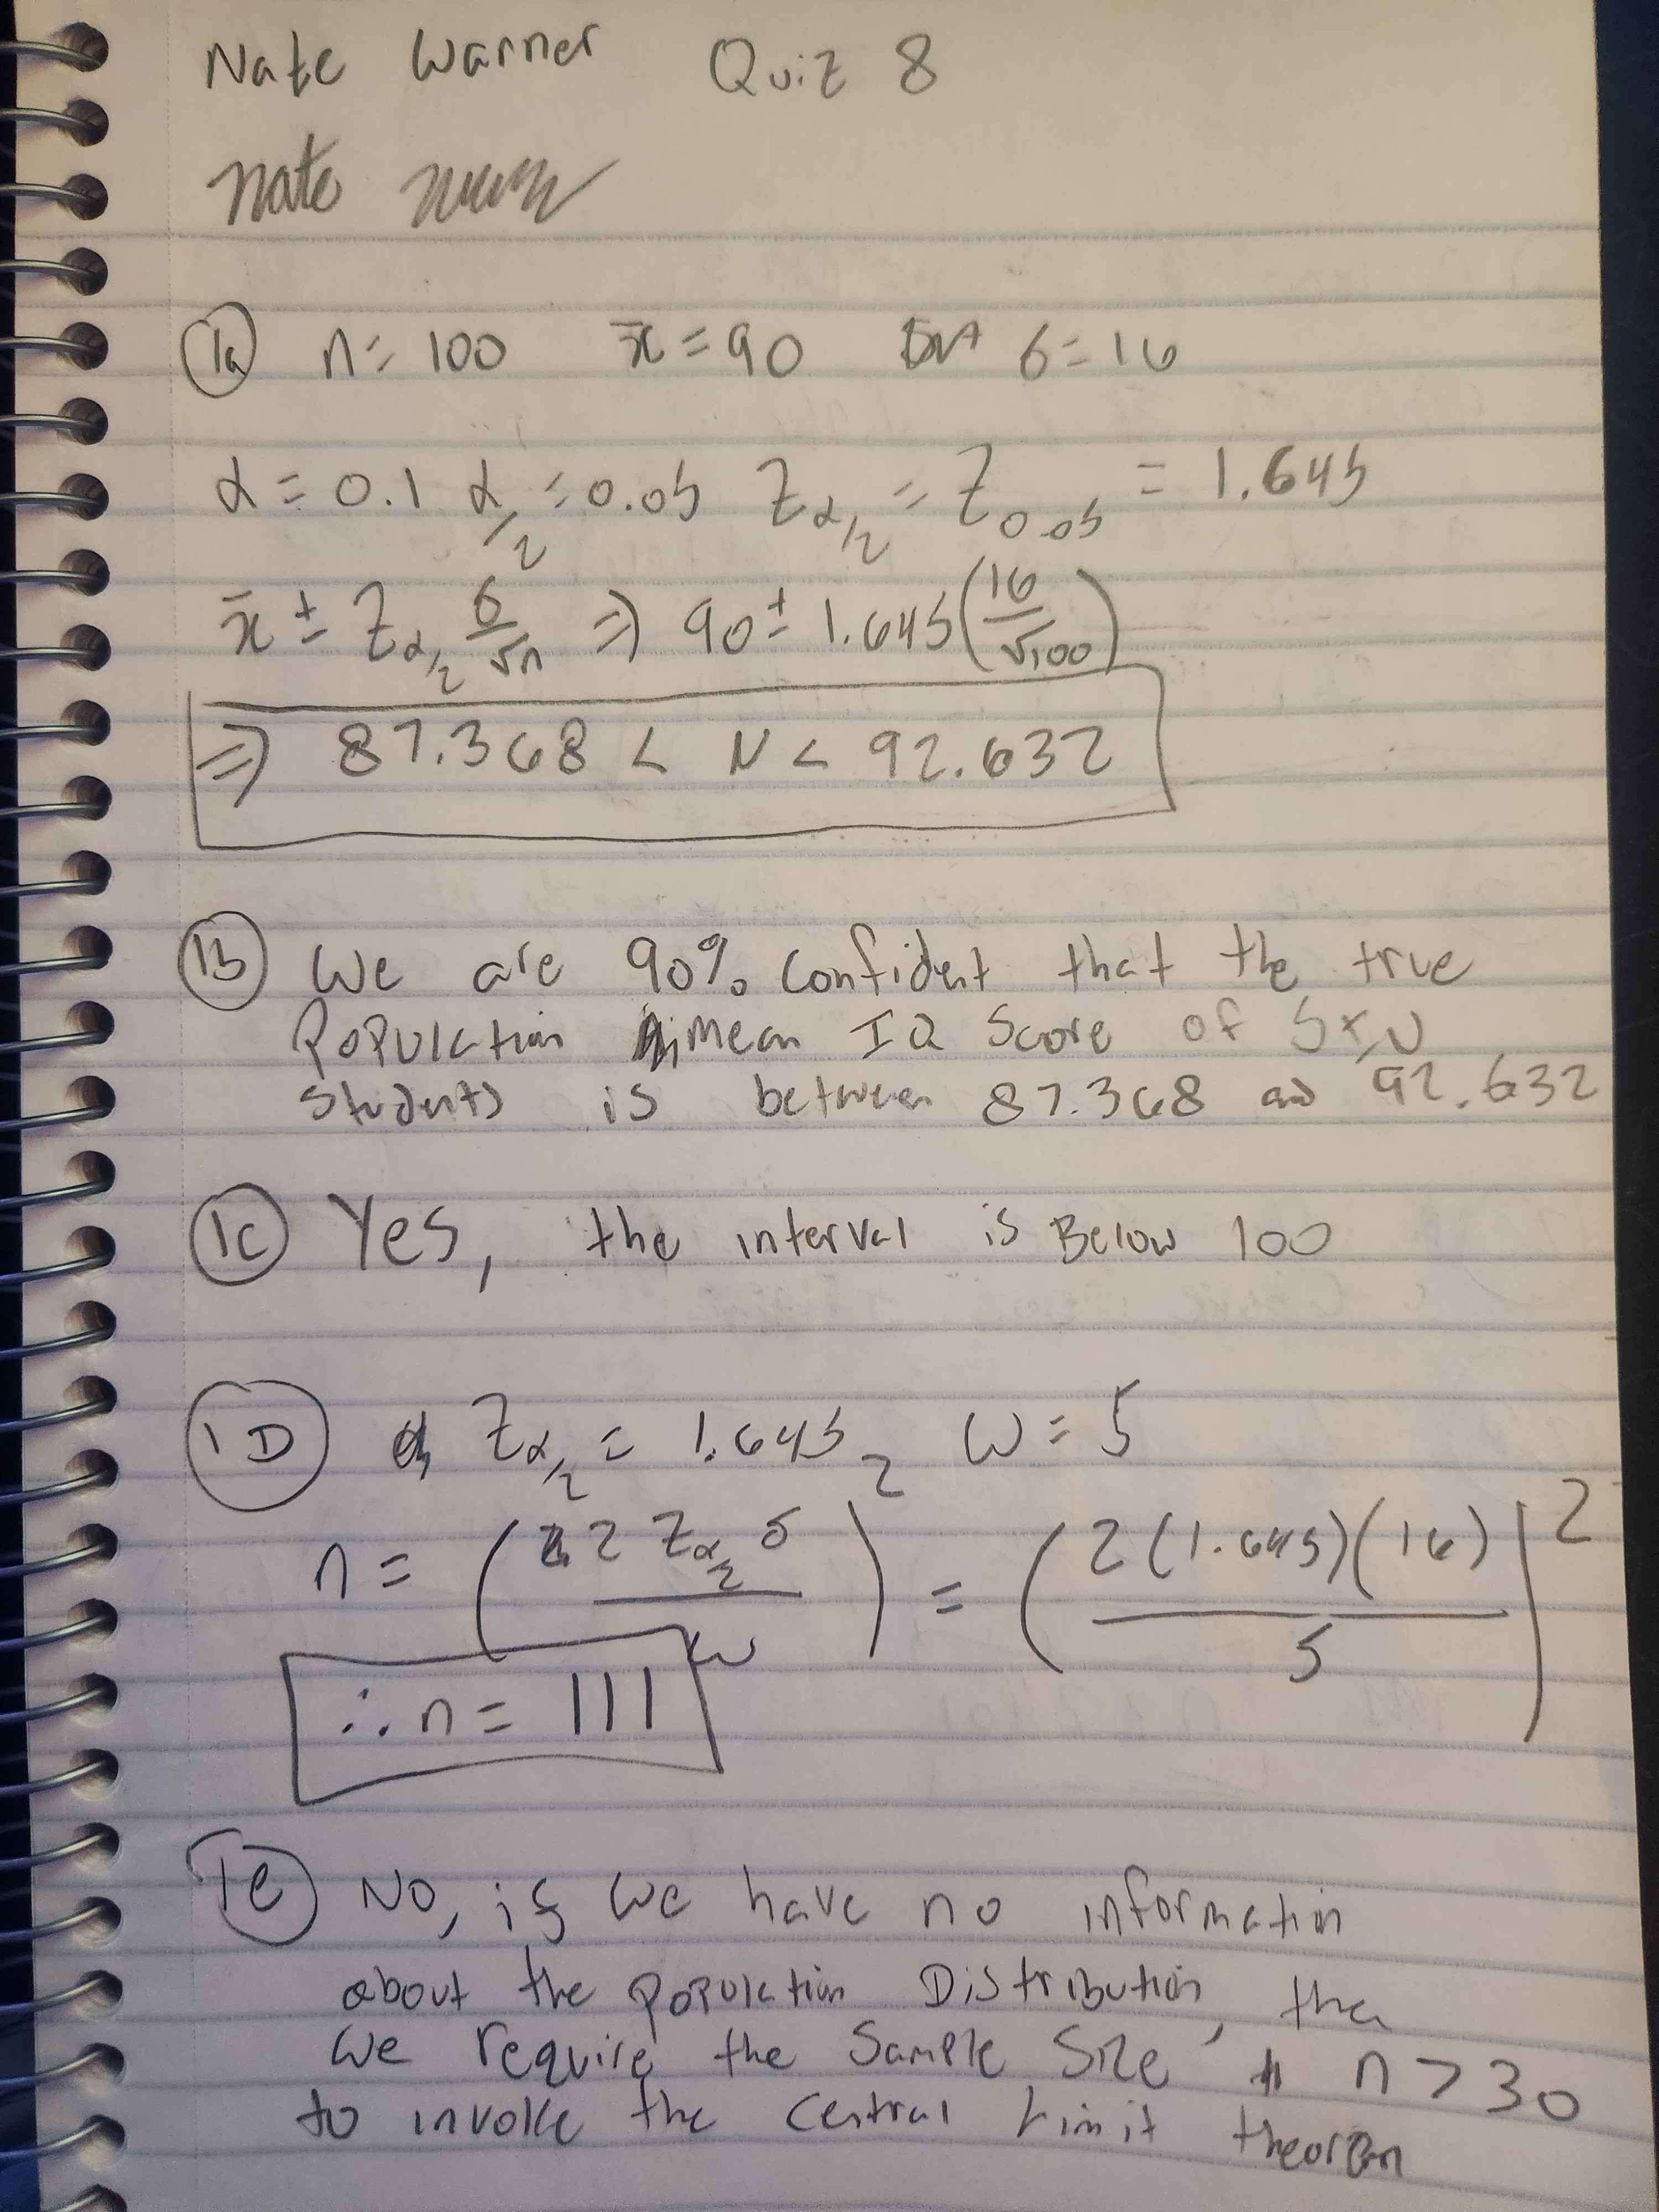 Nate Warner Quiz 8
Nate
1a n = 100 x̄ = 90 σ = 16
α = 0.1 α/2 = 0.05 Z_α/2 = Z_0.05 = 1.645
x̄ ± Z_α/2 σ/√n ⇒ 90 ± 1.645(16/√100)
⇒ 87.368 < μ < 92.632
1b We are 90% confident that the true
Population Mean IQ Score of
students is between 87.368 and 92.632
1c Yes, the interval is Below 100
1D Z_α/2 = 1.645 W = 5
n = (2 Z_α/2 σ / w)² = (2(1.645)(16) / 5)²
∴ n = 111
1e No, if we have no information
about the population Distribution, then
We require the Sample Size n > 30
to invoke the Central Limit theorem